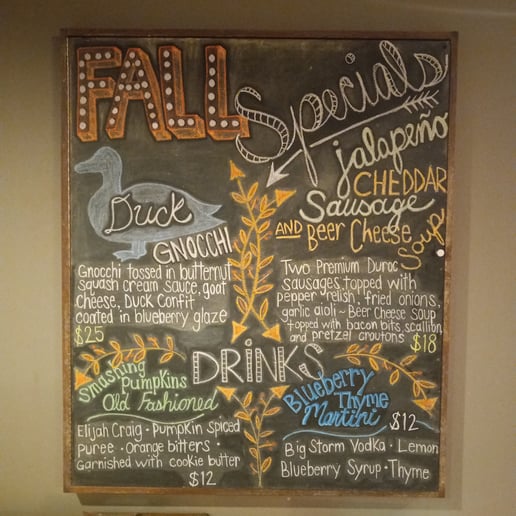 FALL
Specials
Duck
GNOCCHI
Gnocchi tossed in butternut
squash cream sauce, goat
cheese, Duck Confit
coated in blueberry glaze
$25
jalapeño
CHEDDAR
Sausage
AND Beer Cheese
Soup
Two Premium Duroc
sausages topped with
pepper relish, fried onions,
garlic aioli ~ Beer Cheese soup
topped with bacon bits, scallion
and pretzel croutons $18
DRINKS
Smashing
Pumpkins
Old Fashioned
Elijah Craig • Pumpkin Spiced
Puree • Orange bitters •
Garnished with cookie butter
$12
Blueberry
Thyme
Martini $12
Big Storm Vodka • Lemon
Blueberry Syrup • Thyme